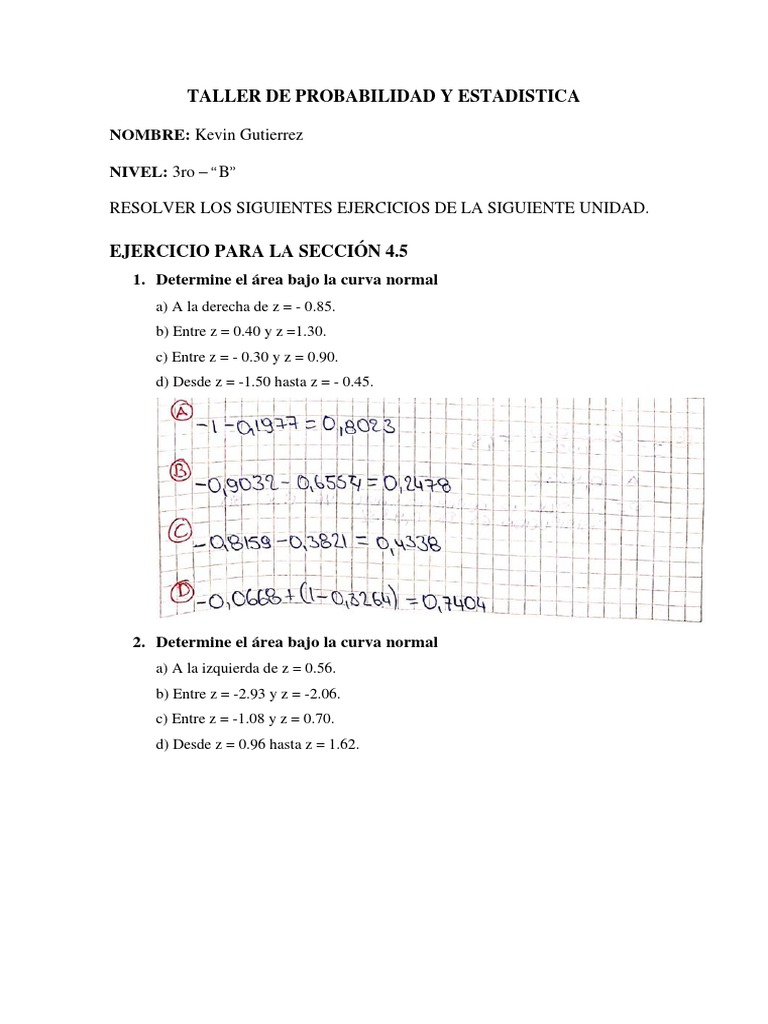 TALLER DE PROBABILIDAD Y ESTADISTICA
NOMBRE: Kevin Gutierrez
NIVEL: 3ro – “B”
RESOLVER LOS SIGUIENTES EJERCICIOS DE LA SIGUIENTE UNIDAD.
EJERCICIO PARA LA SECCIÓN 4.5
1. Determine el área bajo la curva normal
a) A la derecha de z = - 0.85.
b) Entre z = 0.40 y z =1.30.
c) Entre z = - 0.30 y z = 0.90.
d) Desde z = -1.50 hasta z = - 0.45.
A -1-0,1977=0,8023
B -0,9032-0,6554=0,2478
C -0,8159-0,3821=0,4338
D -0,0668+(1-0,3264)=0,7404
2. Determine el área bajo la curva normal
a) A la izquierda de z = 0.56.
b) Entre z = -2.93 y z = -2.06.
c) Entre z = -1.08 y z = 0.70.
d) Desde z = 0.96 hasta z = 1.62.